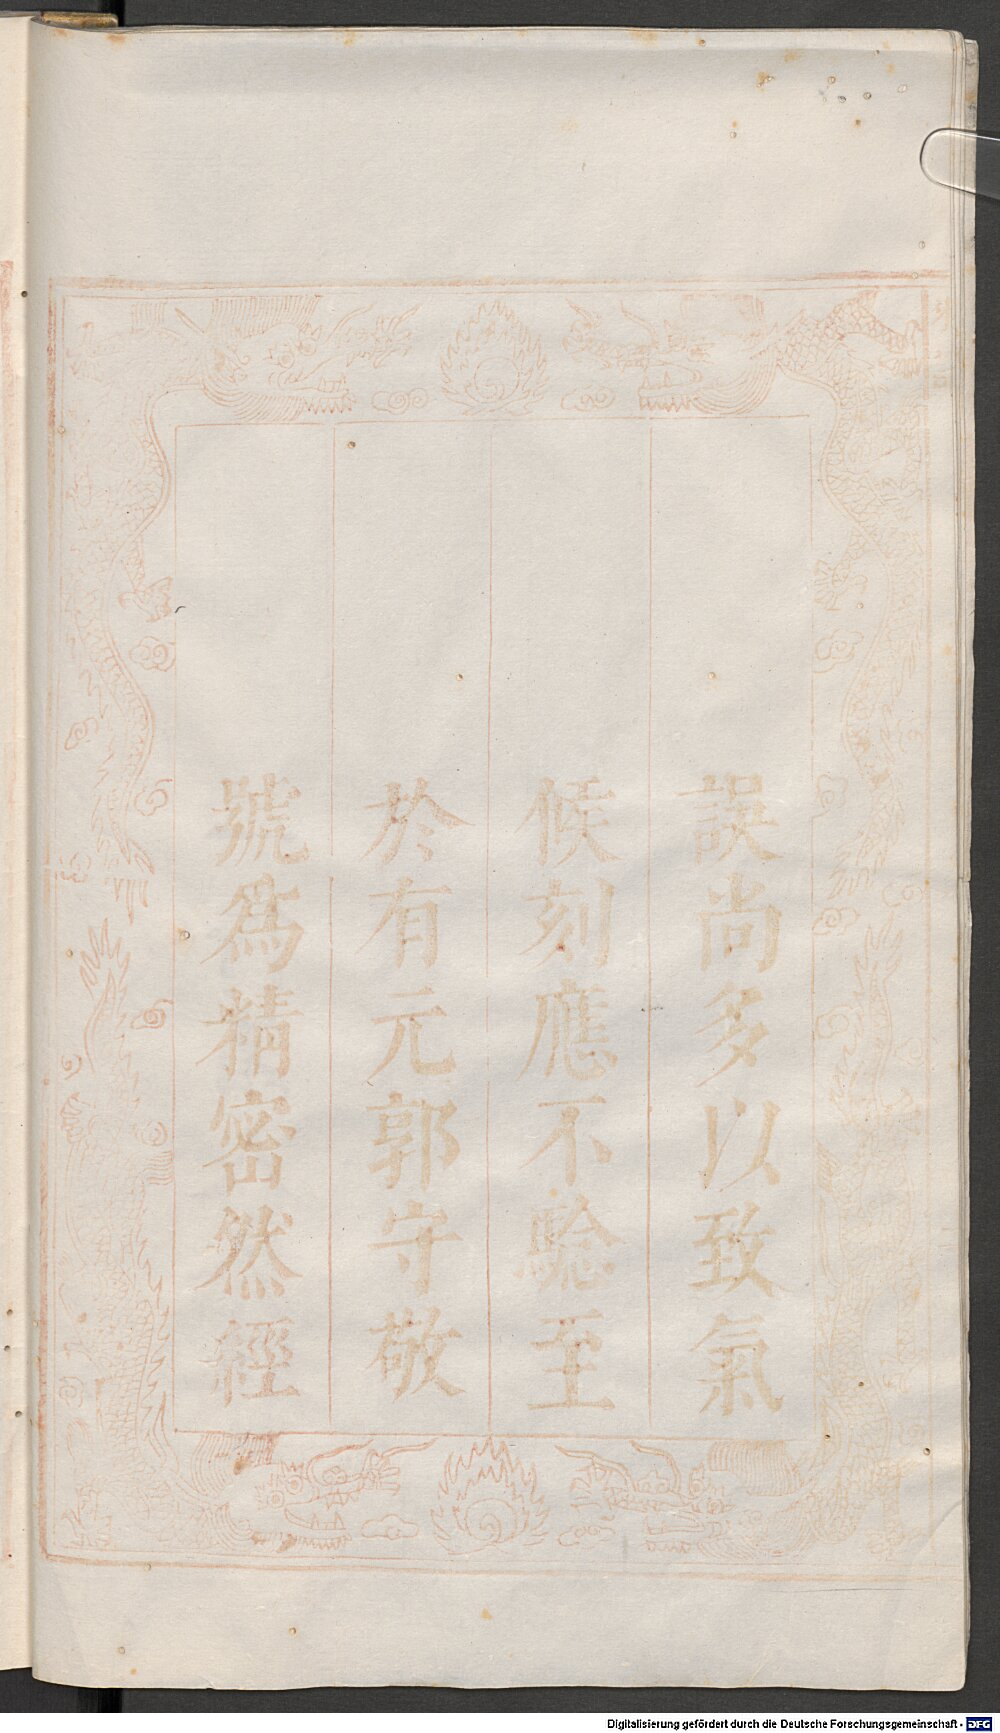 誤尚多以致氣
候刻應不騐至
於有元郭守敬
號爲精密然經
Digitalisierung gefördert durch die Deutsche Forschungsgemeinschaft - DFG